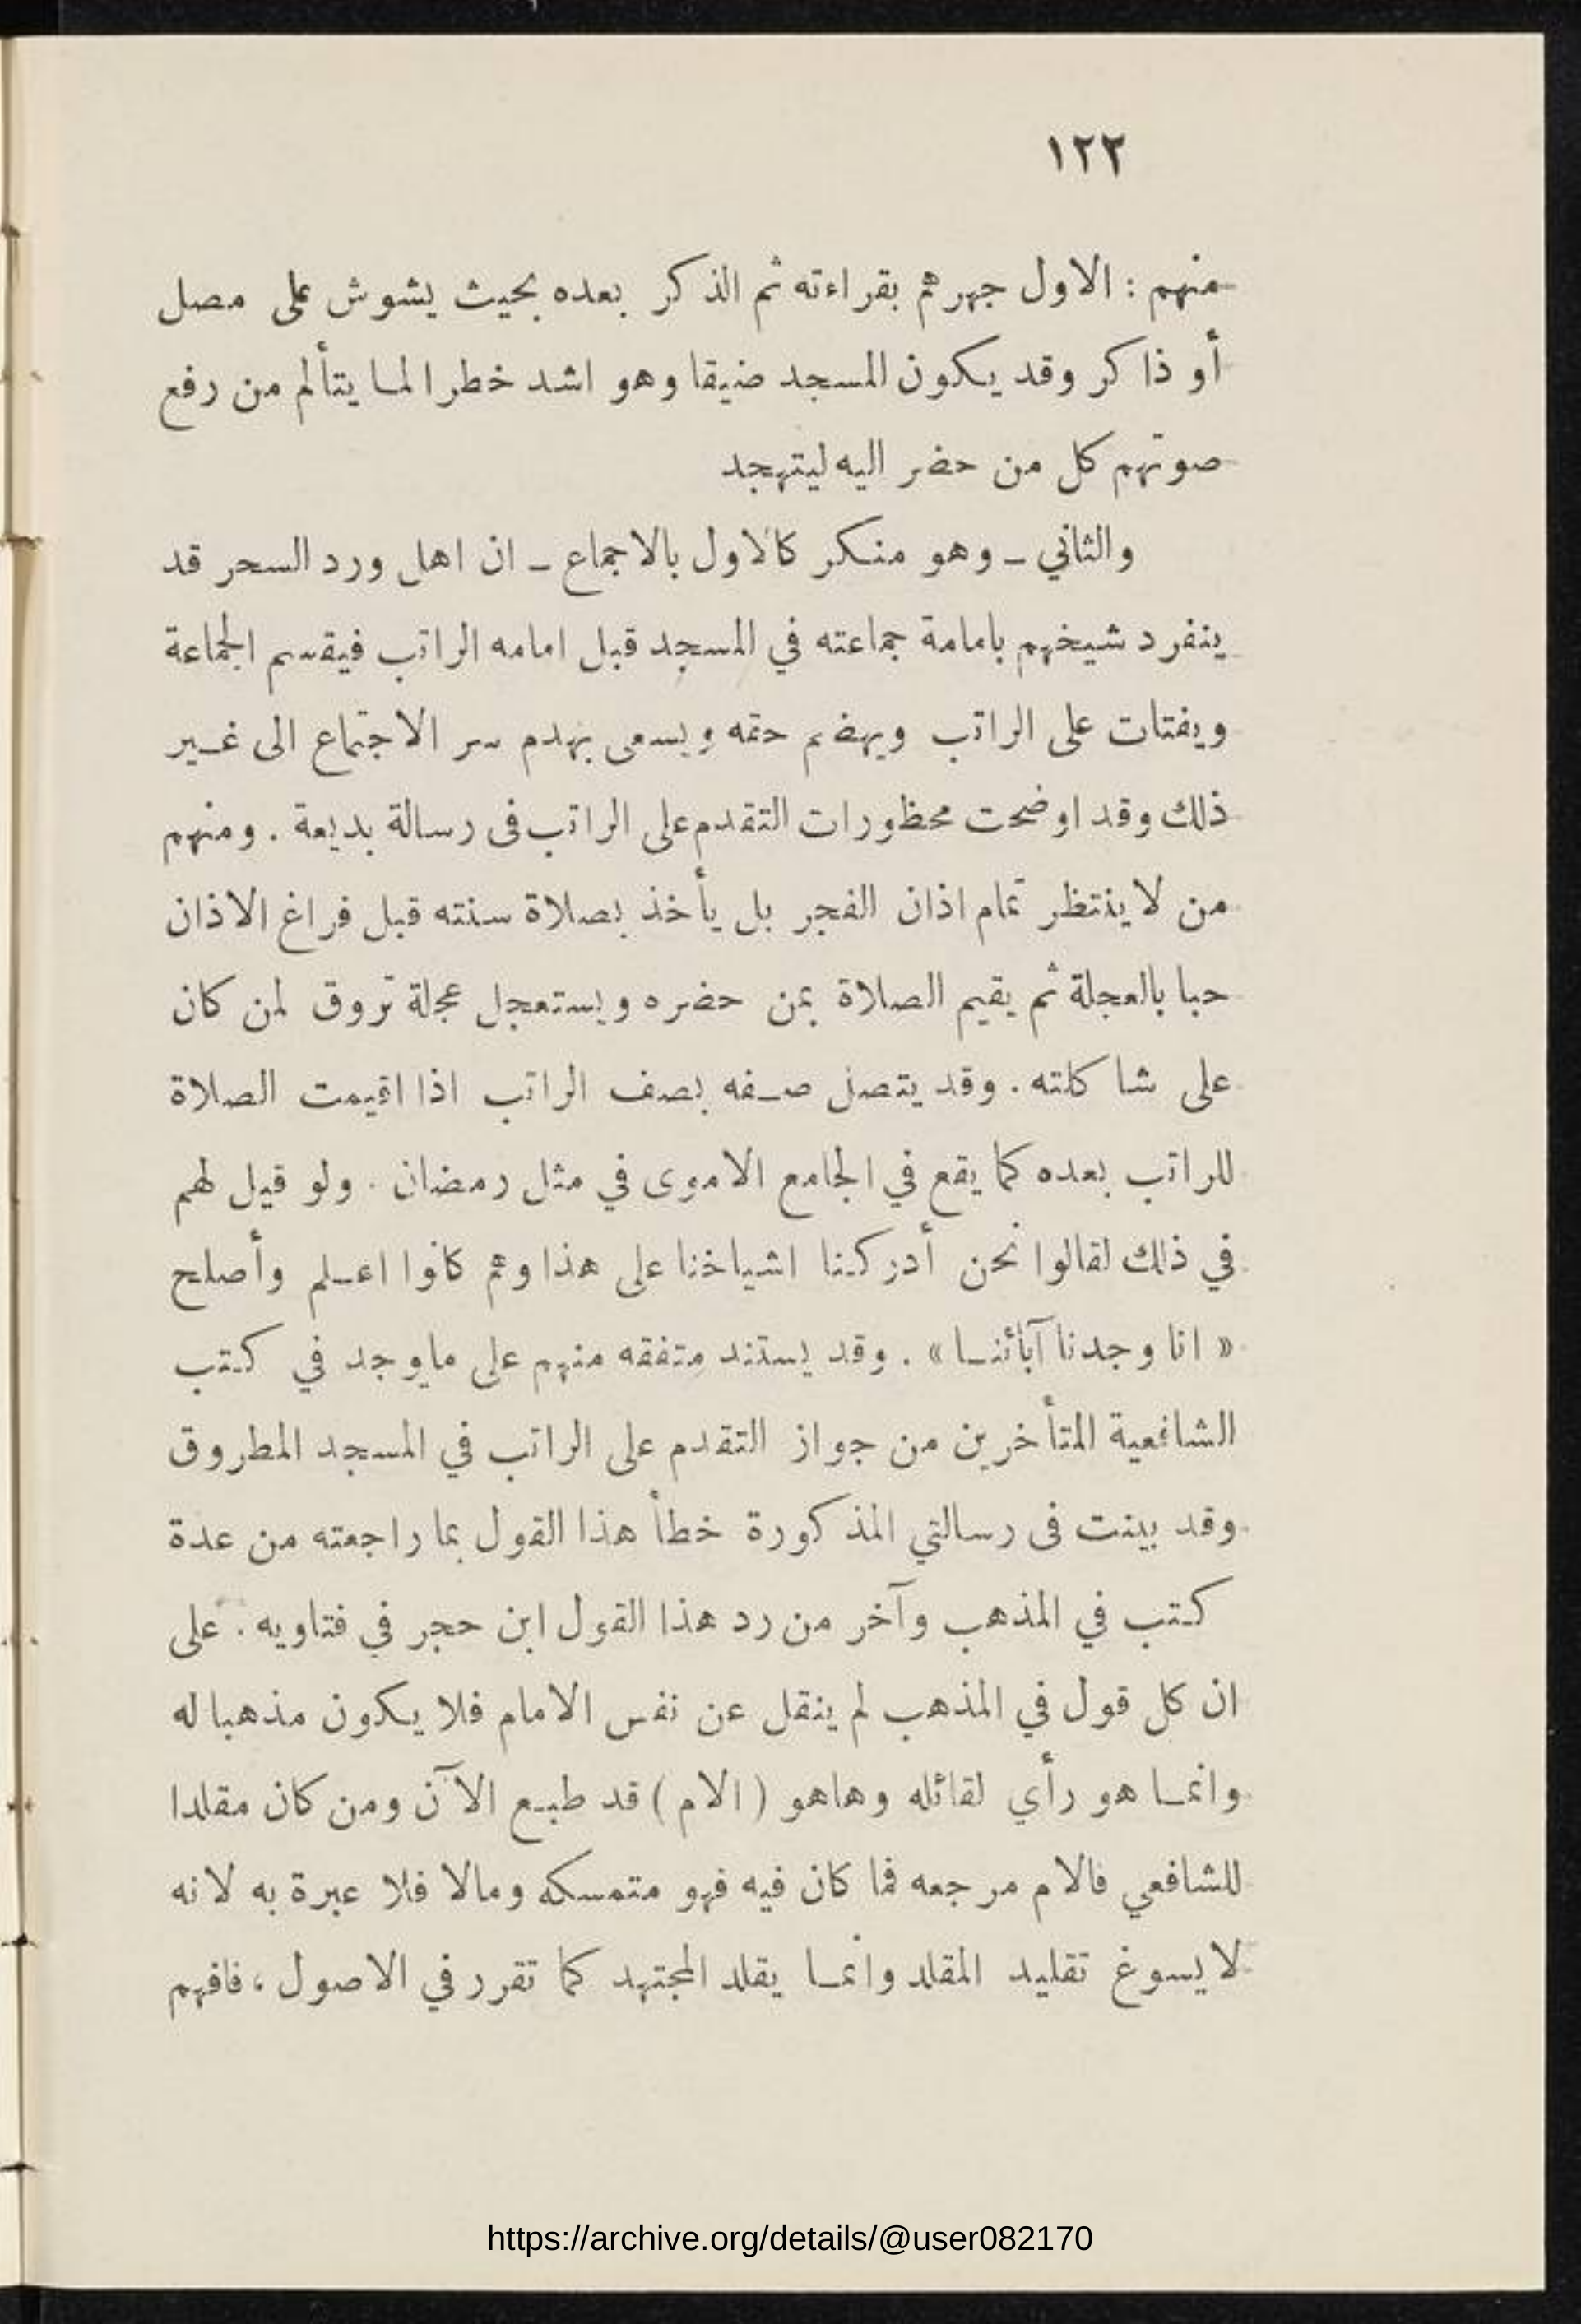 ١٢٢
منهم : الاول جهرهم بقراءته ثم الذكر بعده بحيث يشوش على مصل
أو ذاكر وقد يكون المسجد ضيقا وهو اشد خطرا لما يتألم من رفع
صوتهم كل من حضر اليه ليتهجد
والثاني ــ وهو منكر كالاول بالاجماع ــ ان اهل ورد السحر قد
ينفرد شيخهم بامامة جماعته في المسجد قبل امامه الراتب فيقسم الجماعة
ويفتات على الراتب ويهضم حقه ويسعى بهدم سر الاجتماع الى غير
ذلك وقد اوضحت محظورات التقدم على الراتب فى رسالة بديعة . ومنهم
من لا ينتظر تمام اذان الفجر بل يأخذ بصلاة سنته قبل فراغ الاذان
حبا بالعجلة ثم يقيم الصلاة بمن حضره ويستعجل عجلة تروق لمن كان
على شاكلته . وقد يتصل صفه بصف الراتب اذا اقيمت الصلاة
للراتب بعده كما يقع في الجامع الاموى في مثل رمضان . ولو قيل لهم
في ذلك لقالوا نحن أدركنا اشياخنا على هذا وهم كانوا اعلم وأصلح
« انا وجدنا آبائنا » . وقد يستند متفقه منهم على ماوجد في كتب
الشافعية المتأخرين من جواز التقدم على الراتب في المسجد المطروق
وقد بينت فى رسالتي المذكورة خطأ هذا القول بما راجعته من عدة
كتب في المذهب وآخر من رد هذا القول ابن حجر في فتاويه . على
ان كل قول في المذهب لم ينقل عن نفس الامام فلا يكون مذهبا له
وانما هو رأي لقائله وهاهو ( الام ) قد طبع الآن ومن كان مقلدا
للشافعي فالام مرجعه فما كان فيه فهو متمسكه ومالا فلا عبرة به لانه
لا يسوغ تقليد المقلد وانما يقلد المجتهد كما تقرر في الاصول ، فافهم
https://archive.org/details/@user082170